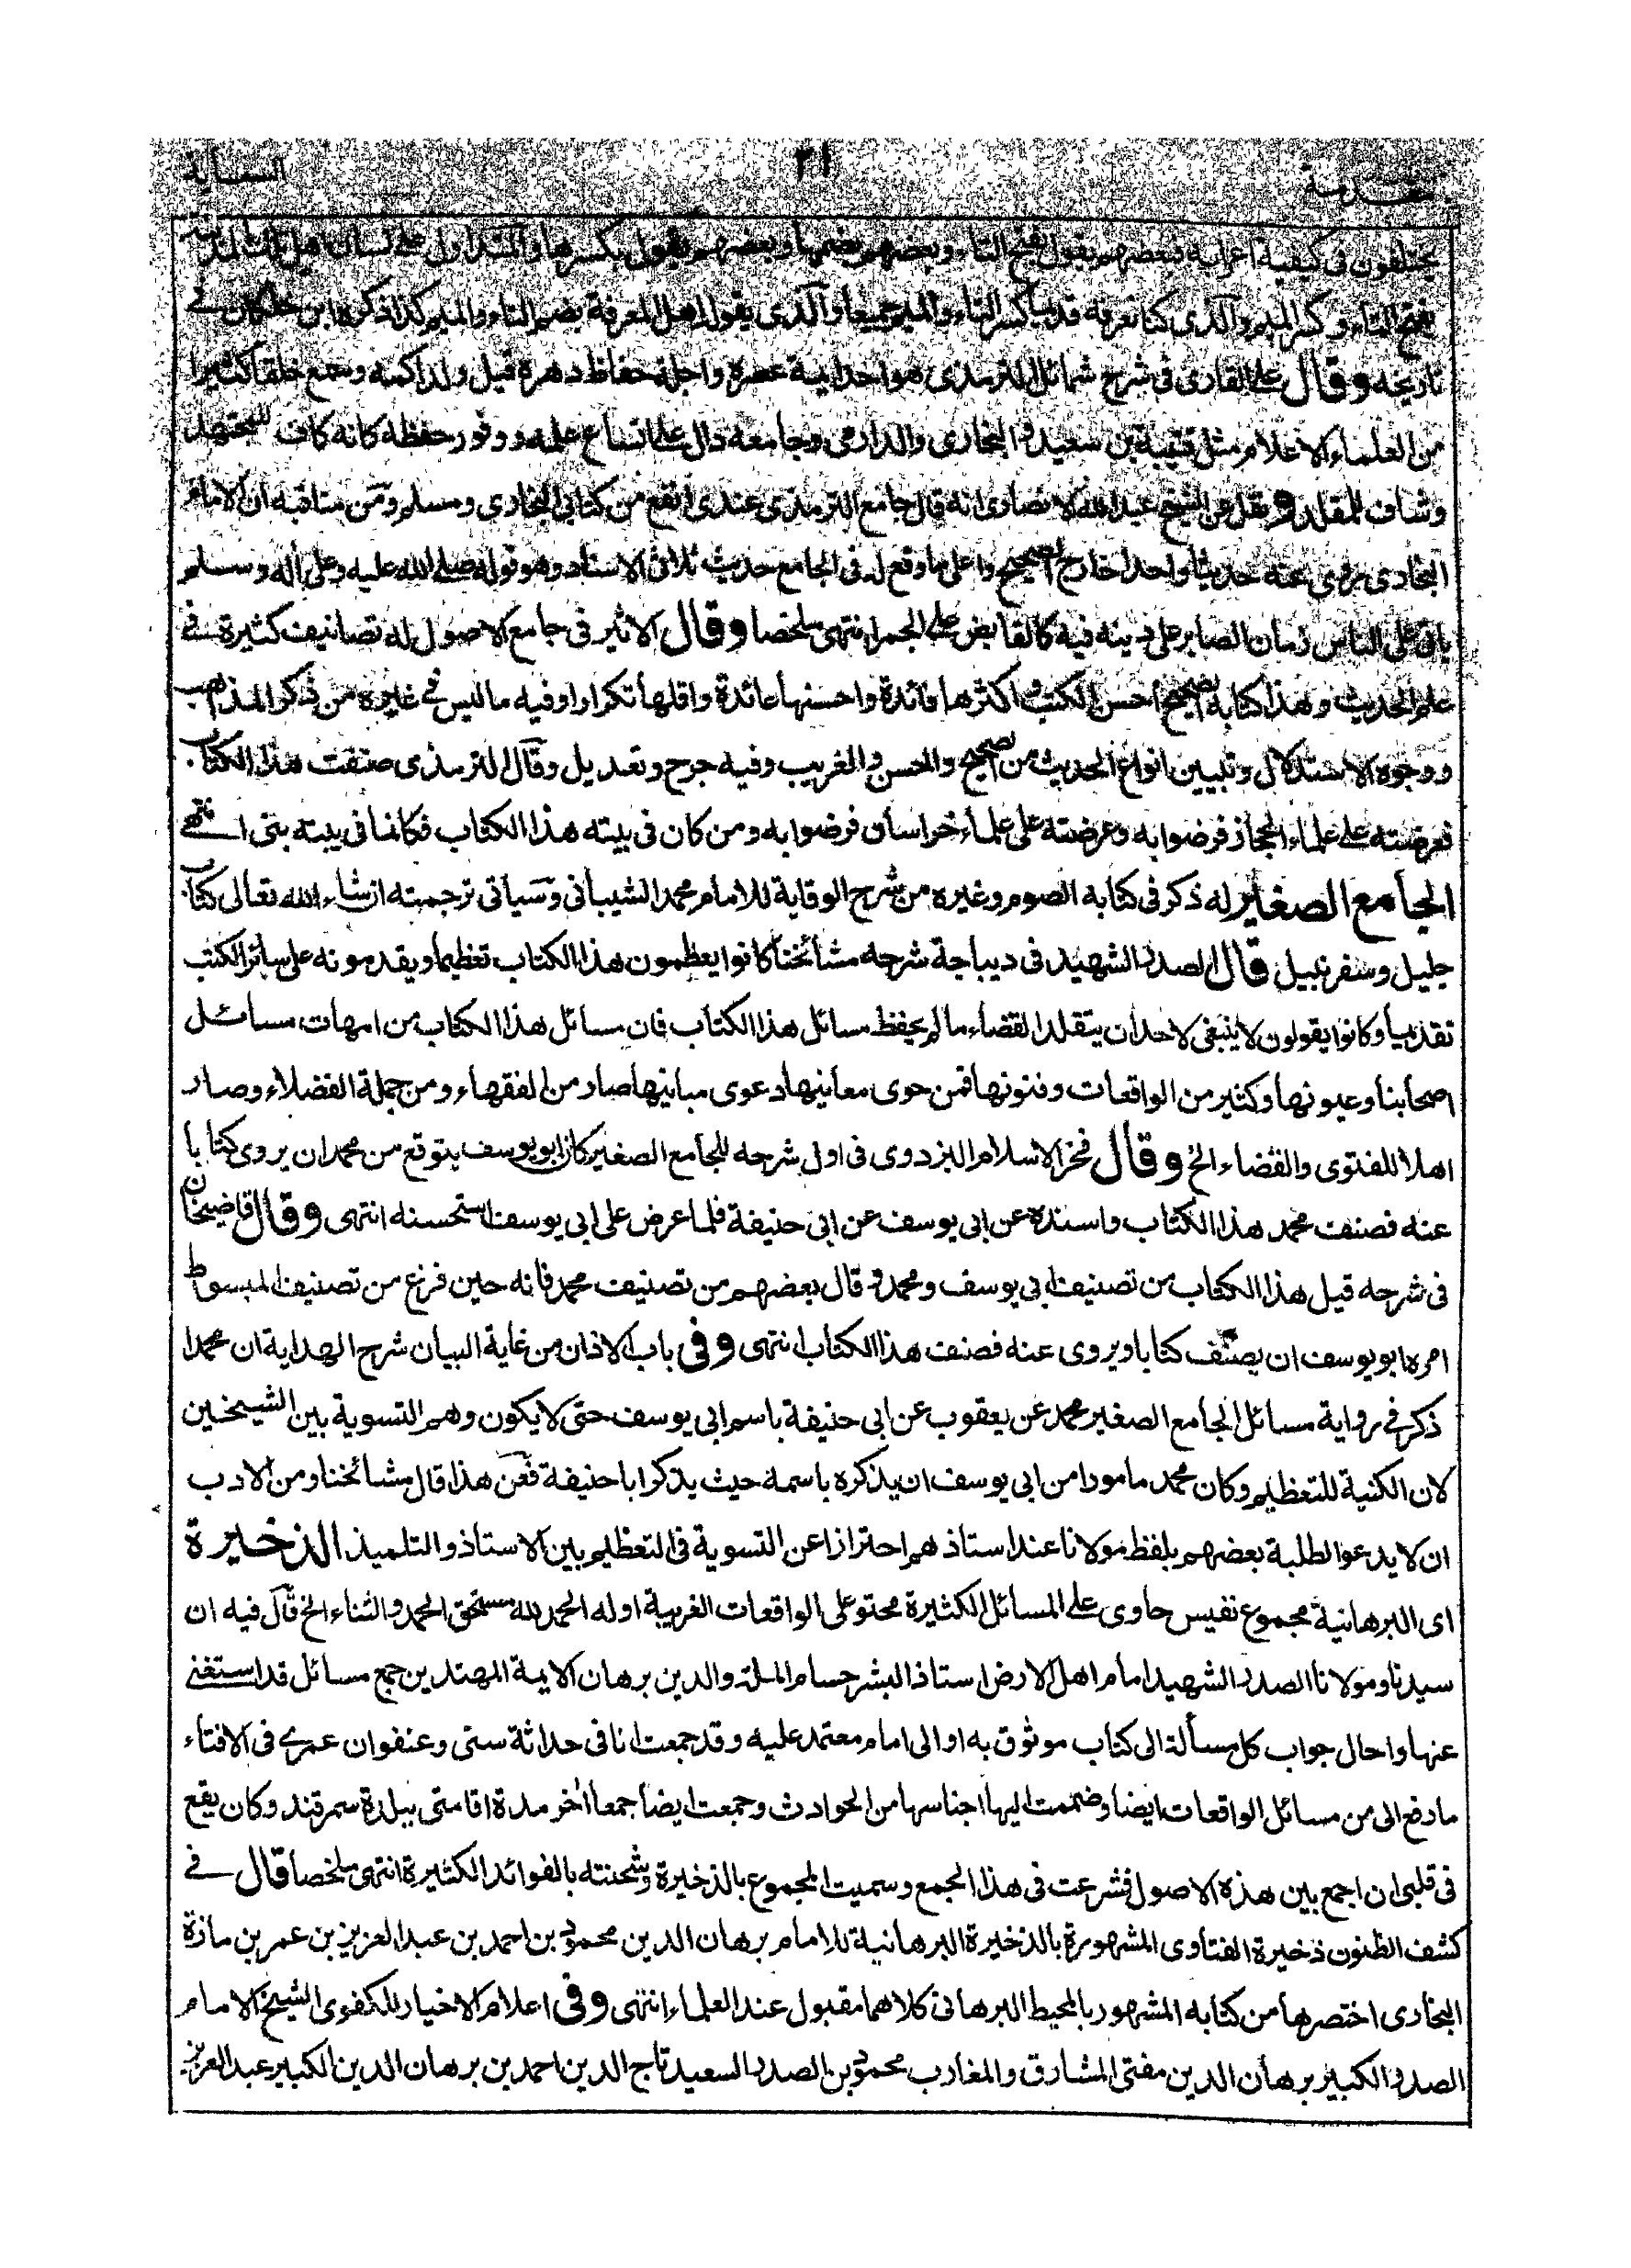 مقدمة ٢١ السعاية
يختلفون فى كيفية اعرابه فبعضهم يقول بفتح التاء وبعضهم بضمها وبعضهم يقول بكسرها والمتداول على لسان اهل تلك المدينة
بفتح التاء وكسر الميم والذى كنا نعرفه قديما كسر التاء والميم جميعا والذى يقوله اهل المعرفة بضم التاء والميم كذا ذكره ابن خلكان فى
تاريخه وقال على القارى فى شرح شمائل الترمذى هو احد ايمة عصره واجلة حفاظ دهره قيل ولد اكمه وسمع خلقا كثيرا
من العلماء الاعلام مثل قتيبة بن سعيد والبخارى والدارمى وجامعه دال على اتساع علمه ووفور حفظه كانه كاف للمجتهد
وشاف للمقلد ونقل عن الشيخ عبد الله الانصارى انه قال جامع الترمذى عندى انفع من كتابى البخارى ومسلم ومن مناقبه ان الامام
البخارى روى عنه حديثا واحدا خارج الصحيح واعلى ما وقع له فى الجامع حديث ثلاثى الاسناد وهو قوله صلى الله عليه وعلى أله وسلم
ياتى على الناس زمان الصابر على دينه فيه كالقابض على الجمر انتهى ملخصا وقال الاثير فى جامع الاصول له تصانيف كثيرة فى
علم الحديث وهذا كتابه الصحيح احسن الكتب و اكثرها فائدة واحسنها عائدة واقلها تكرارا وفيه ما ليس فى غيره من ذكر المذاهب
ووجوه الاستدلال وتبيين انواع الحديث من الصحيح والحسن والغريب وفيه جرح وتعديل وقال الترمذى صنفت هذا الكتاب
فعرضته على علماء الحجاز فرضوا به وعرضته على علماء خراسان فرضوا به ومن كان فى بيته هذا الكتاب فكانما فى بيته بنى انتهى
الجامع الصغير له ذكر فى كتابه الصوم وغيره من شرح الوقاية للامام محمد الشيبانى وسياتى ترجمته ان شاء الله تعالى كتاب
جليل وسفر نبيل قال الصدر الشهيد فى ديباجة شرحه مشائخنا كانوا يعظمون هذا الكتاب تعظيما ويقدمونه على سائر الكتب
تقديما وكانوا يقولون لا ينبغى لاحد ان يتقلد القضاء ما لم يحفظ مسائل هذا الكتاب فان مسائل هذا الكتاب من امهات مسائل
اصحابنا وعيونها وكثير من الواقعات وفنونها فمن حوى معانيها دعوى مبانيها صار من الفقهاء ومن جملة الفضلاء وصار
اهلا للفتوى والقضاء الخ وقال فخر الاسلام البزدوى فى اول شرحه للجامع الصغير كان ابو يوسف يتوقع من محمد ان يروى كتابا
عنه فصنف محمد هذا الكتاب واسنده عن ابى يوسف عن ابى حنيفة فلما عرض على ابى يوسف استحسنه انتهى وقال قاضيخان
فى شرحه قيل هذا الكتاب من تصنيف ابى يوسف ومحمد و قال بعضهم من تصنيف محمد فانه حين فرغ من تصنيف المبسوط
امره ابو يوسف ان يصنف كتابا ويروى عنه فصنف هذا الكتاب انتهى وفى باب الاذان من غاية البيان شرح الهداية ان محمدا
ذكر فى رواية مسائل الجامع الصغير محمد عن يعقوب عن ابى حنيفة باسم ابى يوسف حتى لا يكون وهم التسوية بين الشيخين
لان الكنية للتعظيم وكان محمد مامورا من ابى يوسف ان يذكره باسمه حيث يذكر ابا حنيفة فعن هذا قال مشائخنا ومن الادب
ان لا يدعو الطلبة بعضهم بلفظ مولانا عند استاذهم احترازا عن التسوية فى التعظيم بين الاستاذ والتلميذ الذخيرة
اى البرهانية مجموع نفيس حاوى على المسائل الكثيرة محتو على الواقعات الغريبة اوله الحمد لله مستحق الحمد والثناء الخ قال فيه ان
سيدنا ومولانا الصدر الشهيد امام اهل الارض استاذ البشر حسام الملة والدين برهان الايمة المهتدين جمع مسائل قد استفتى
عنها واحال جواب كل مسألة الى كتاب موثوق به او الى امام معتمد عليه وقد جمعت انا فى حداثة سنى وعنفوان عمرى فى الافتاء
ما دفع الى من مسائل الواقعات ايضا وضممت اليها اجناسها من الحوادث وجمعت ايضا جمعا اخر مدة اقامتى ببلدة سمرقند وكان يقع
فى قلبى ان اجمع بين هذه الاصول فشرعت فى هذا الجمع وسميت المجموع بالذخيرة وشحنته بالفوائد الكثيرة انتهى ملخصا قال فى
كشف الظنون ذخيرة الفتاوى المشهورة بالذخيرة البرهانية للامام برهان الدين محمود بن احمد بن عبد العزيز بن عمر بن مازة
البخارى اختصرها من كتابه المشهور بالمحيط البرهانى كلاهما مقبول عند العلماء انتهى وفى اعلام الاخيار للكفوى الشيخ الامام
الصدر الكبير برهان الدين مفتى المشارق والمغارب محمود بن الصدر السعيد تاج الدين احمد بن برهان الدين الكبير عبد العزيز